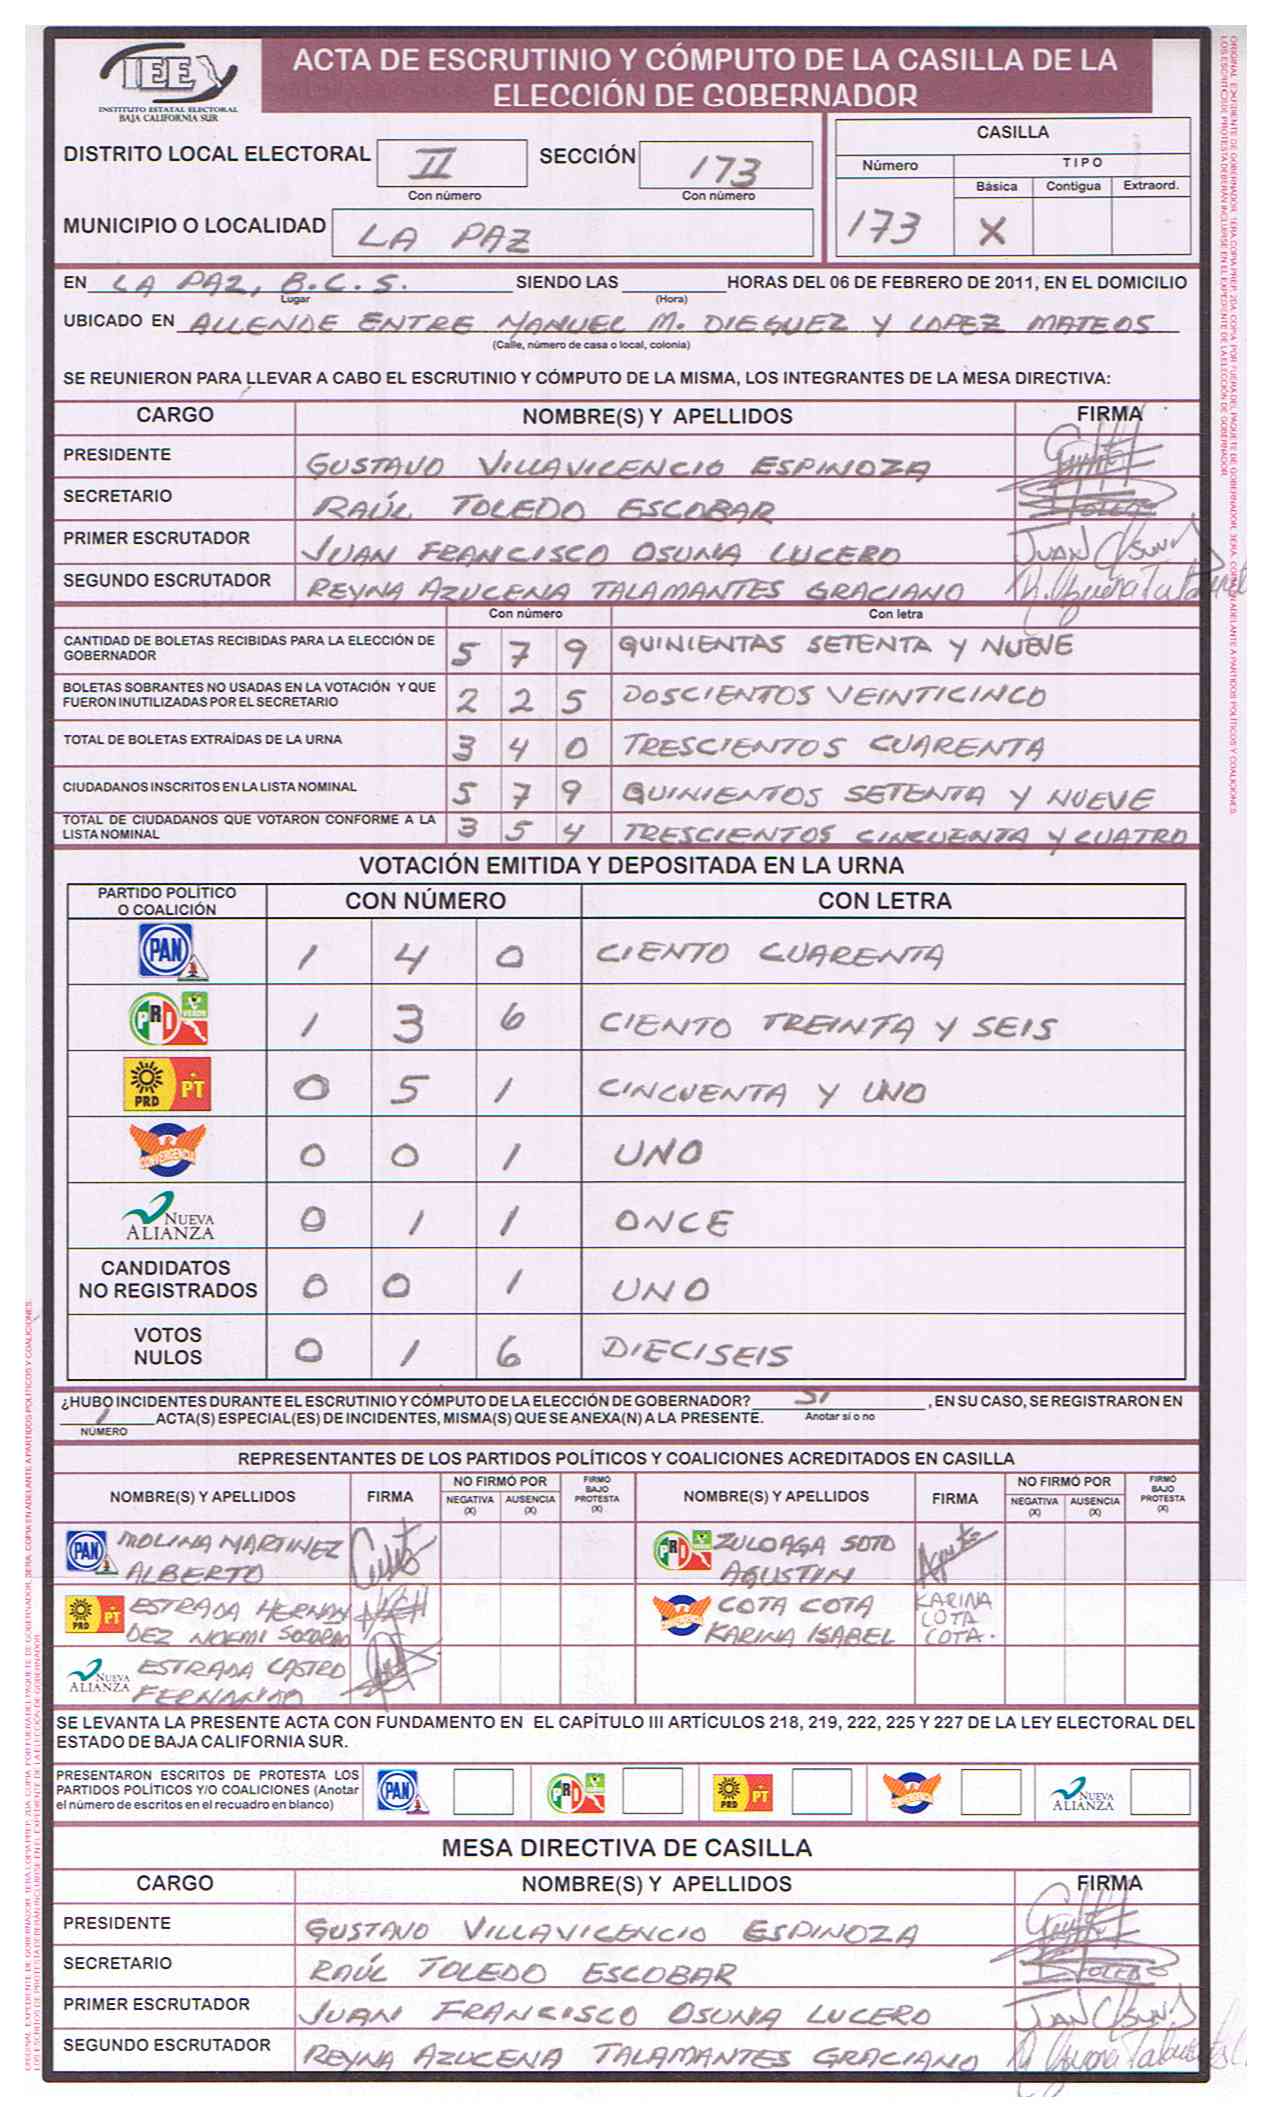 IEE
INSTITUTO ESTATAL ELECTORAL
BAJA CALIFORNIA SUR
ACTA DE ESCRUTINIO Y CÓMPUTO DE LA CASILLA DE LA
ELECCIÓN DE GOBERNADOR
DISTRITO LOCAL ELECTORAL II SECCIÓN 173
Con número Con número
MUNICIPIO O LOCALIDAD LA PAZ
CASILLA
Número TIPO
Básica Contigua Extraord.
173 X
EN LA PAZ, B.C.S. SIENDO LAS HORAS DEL 06 DE FEBRERO DE 2011, EN EL DOMICILIO
Lugar (Hora)
UBICADO EN ALLENDE ENTRE MANUEL M. DIEGUEZ Y LOPEZ MATEOS
(Calle, número de casa o local, colonia)
SE REUNIERON PARA LLEVAR A CABO EL ESCRUTINIO Y CÓMPUTO DE LA MISMA, LOS INTEGRANTES DE LA MESA DIRECTIVA:
CARGO NOMBRE(S) Y APELLIDOS FIRMA
PRESIDENTE GUSTAVO VILLAVICENCIO ESPINOZA
SECRETARIO RAÚL TOLEDO ESCOBAR
PRIMER ESCRUTADOR JUAN FRANCISCO OSUNA LUCERO
SEGUNDO ESCRUTADOR REYNA AZUCENA TALAMANTES GRACIANO
Con número Con letra
CANTIDAD DE BOLETAS RECIBIDAS PARA LA ELECCIÓN DE
GOBERNADOR 5 7 9 QUINIENTAS SETENTA Y NUEVE
BOLETAS SOBRANTES NO USADAS EN LA VOTACIÓN Y QUE
FUERON INUTILIZADAS POR EL SECRETARIO 2 2 5 DOSCIENTOS VEINTICINCO
TOTAL DE BOLETAS EXTRAÍDAS DE LA URNA 3 4 0 TRESCIENTOS CUARENTA
CIUDADANOS INSCRITOS EN LA LISTA NOMINAL 5 7 9 QUINIENTOS SETENTA Y NUEVE
TOTAL DE CIUDADANOS QUE VOTARON CONFORME A LA
LISTA NOMINAL 3 5 4 TRESCIENTOS CINCUENTA Y CUATRO
VOTACIÓN EMITIDA Y DEPOSITADA EN LA URNA
PARTIDO POLÍTICO
O COALICIÓN CON NÚMERO CON LETRA
PAN 1 4 0 CIENTO CUARENTA
PRI VERDE 1 3 6 CIENTO TREINTA Y SEIS
PRD PT 0 5 1 CINCUENTA Y UNO
CONVERGENCIA 0 0 1 UNO
NUEVA
ALIANZA 0 1 1 ONCE
CANDIDATOS
NO REGISTRADOS 0 0 1 UNO
VOTOS
NULOS 0 1 6 DIECISEIS
¿HUBO INCIDENTES DURANTE EL ESCRUTINIO Y CÓMPUTO DE LA ELECCIÓN DE GOBERNADOR? SI , EN SU CASO, SE REGISTRARON EN
1 ACTA(S) ESPECIAL(ES) DE INCIDENTES, MISMA(S) QUE SE ANEXA(N) A LA PRESENTE. Anotar sí o no
NÚMERO
REPRESENTANTES DE LOS PARTIDOS POLÍTICOS Y COALICIONES ACREDITADOS EN CASILLA
NOMBRE(S) Y APELLIDOS FIRMA NO FIRMÓ POR NEGATIVA (X) AUSENCIA (X) FIRMÓ BAJO PROTESTA (X) NOMBRE(S) Y APELLIDOS FIRMA NO FIRMÓ POR NEGATIVA (X) AUSENCIA (X) FIRMÓ BAJO PROTESTA (X)
PAN MOLINA MARTINEZ
ALBERTO
PRI ZULOAGA SOTO
AGUSTIN
PRD PT ESTRADA HERNAN
DEZ NOEMI SOCORRO
CONVERGENCIA COTA COTA
KARINA ISABEL
KARINA
COTA
COTA.
NUEVA
ALIANZA ESTRADA CASTRO
FERNANDO
SE LEVANTA LA PRESENTE ACTA CON FUNDAMENTO EN EL CAPÍTULO III ARTÍCULOS 218, 219, 222, 225 Y 227 DE LA LEY ELECTORAL DEL
ESTADO DE BAJA CALIFORNIA SUR.
PRESENTARON ESCRITOS DE PROTESTA LOS
PARTIDOS POLÍTICOS Y/O COALICIONES (Anotar
el número de escritos en el recuadro en blanco)
PAN PRI PRD PT CONVERGENCIA NUEVA ALIANZA
MESA DIRECTIVA DE CASILLA
CARGO NOMBRE(S) Y APELLIDOS FIRMA
PRESIDENTE GUSTAVO VILLAVICENCIO ESPINOZA
SECRETARIO RAÚL TOLEDO ESCOBAR
PRIMER ESCRUTADOR JUAN FRANCISCO OSUNA LUCERO
SEGUNDO ESCRUTADOR REYNA AZUCENA TALAMANTES GRACIANO